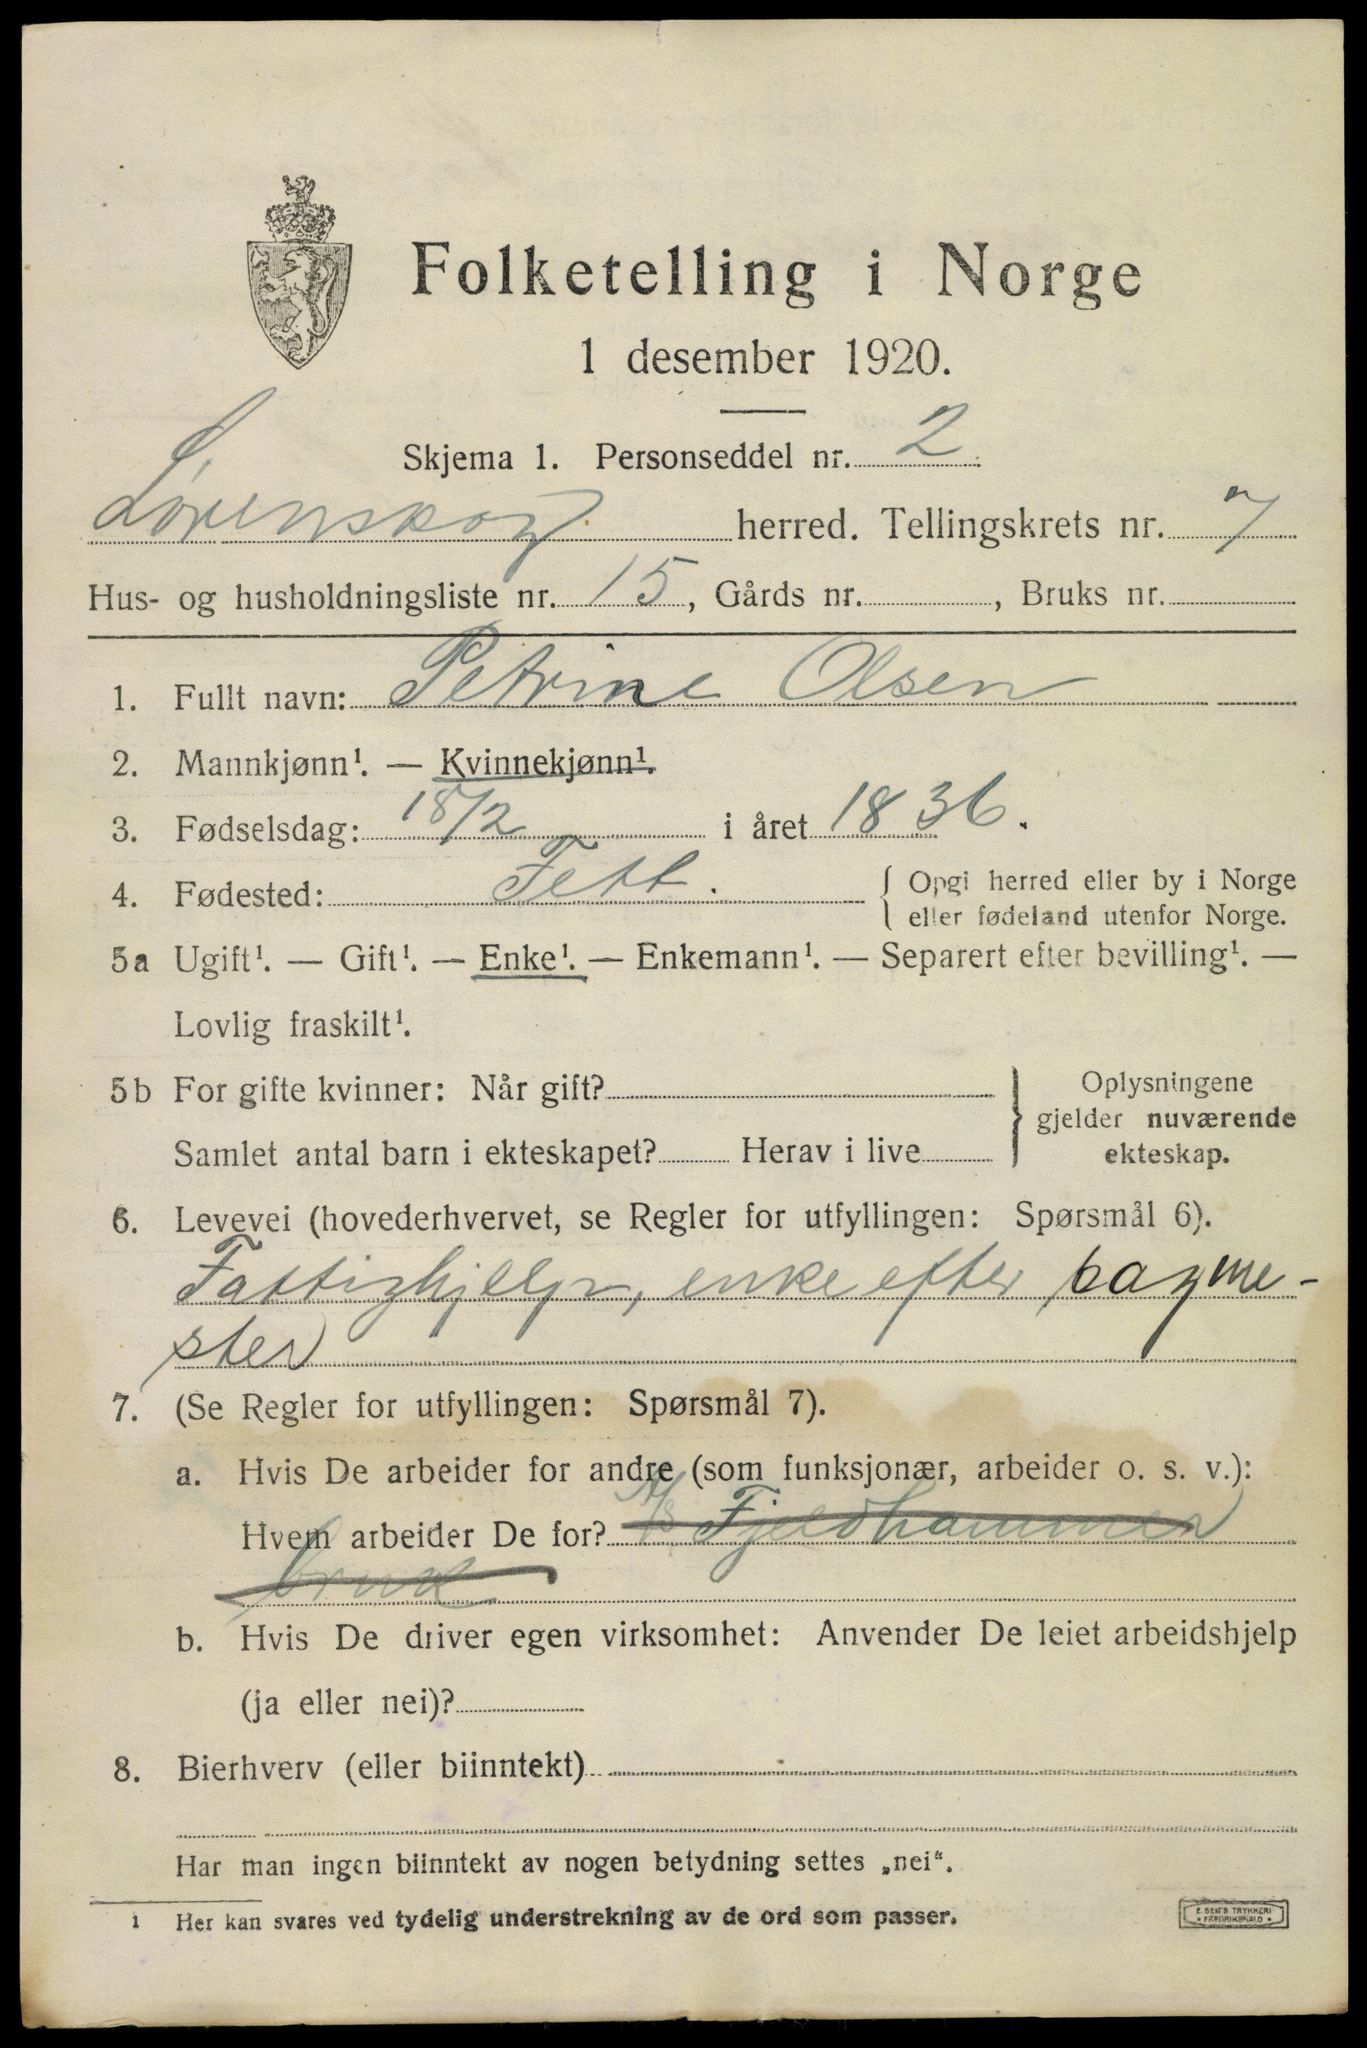 Folketelling i Norge
1 desember 1920.
Skjema 1. Personseddel nr. 2
Lørenskog herred. Tellingskrets nr. 7
Hus- og husholdningsliste nr. 15, Gårds nr. , Bruks nr.
1. Fullt navn: Petrine Olsen
2. Mannkjønn¹. — Kvinnekjønn¹.
3. Fødselsdag: 18/2 i året 1836.
4. Fødested: Fett. { Opgi herred eller by i Norge
eller fødeland utenfor Norge.
5a Ugift¹. — Gift¹. — Enke¹. — Enkemann¹. — Separert efter bevilling¹. —
Lovlig fraskilt¹.
5b For gifte kvinner: Når gift? } Oplysningene
gjelder nuværende
Samlet antal barn i ekteskapet? Herav i live ekteskap.
6. Levevei (hovederhvervet, se Regler for utfyllingen: Spørsmål 6).
Fattighjelp, enke efter sagme-
ster
7. (Se Regler for utfyllingen: Spørsmål 7).
a. Hvis De arbeider for andre (som funksjonær, arbeider o. s. v.):
Hvem arbeider De for? A/S Fjeldhammer
bruk
b. Hvis De driver egen virksomhet: Anvender De leiet arbeidshjelp
(ja eller nei)?
8. Bierhverv (eller biinntekt)
Har man ingen biinntekt av nogen betydning settes „nei“.
¹ Her kan svares ved tydelig understrekning av de ord som passer.
E. SEM'S TRYKKERI
• FREDRIKSHALD •